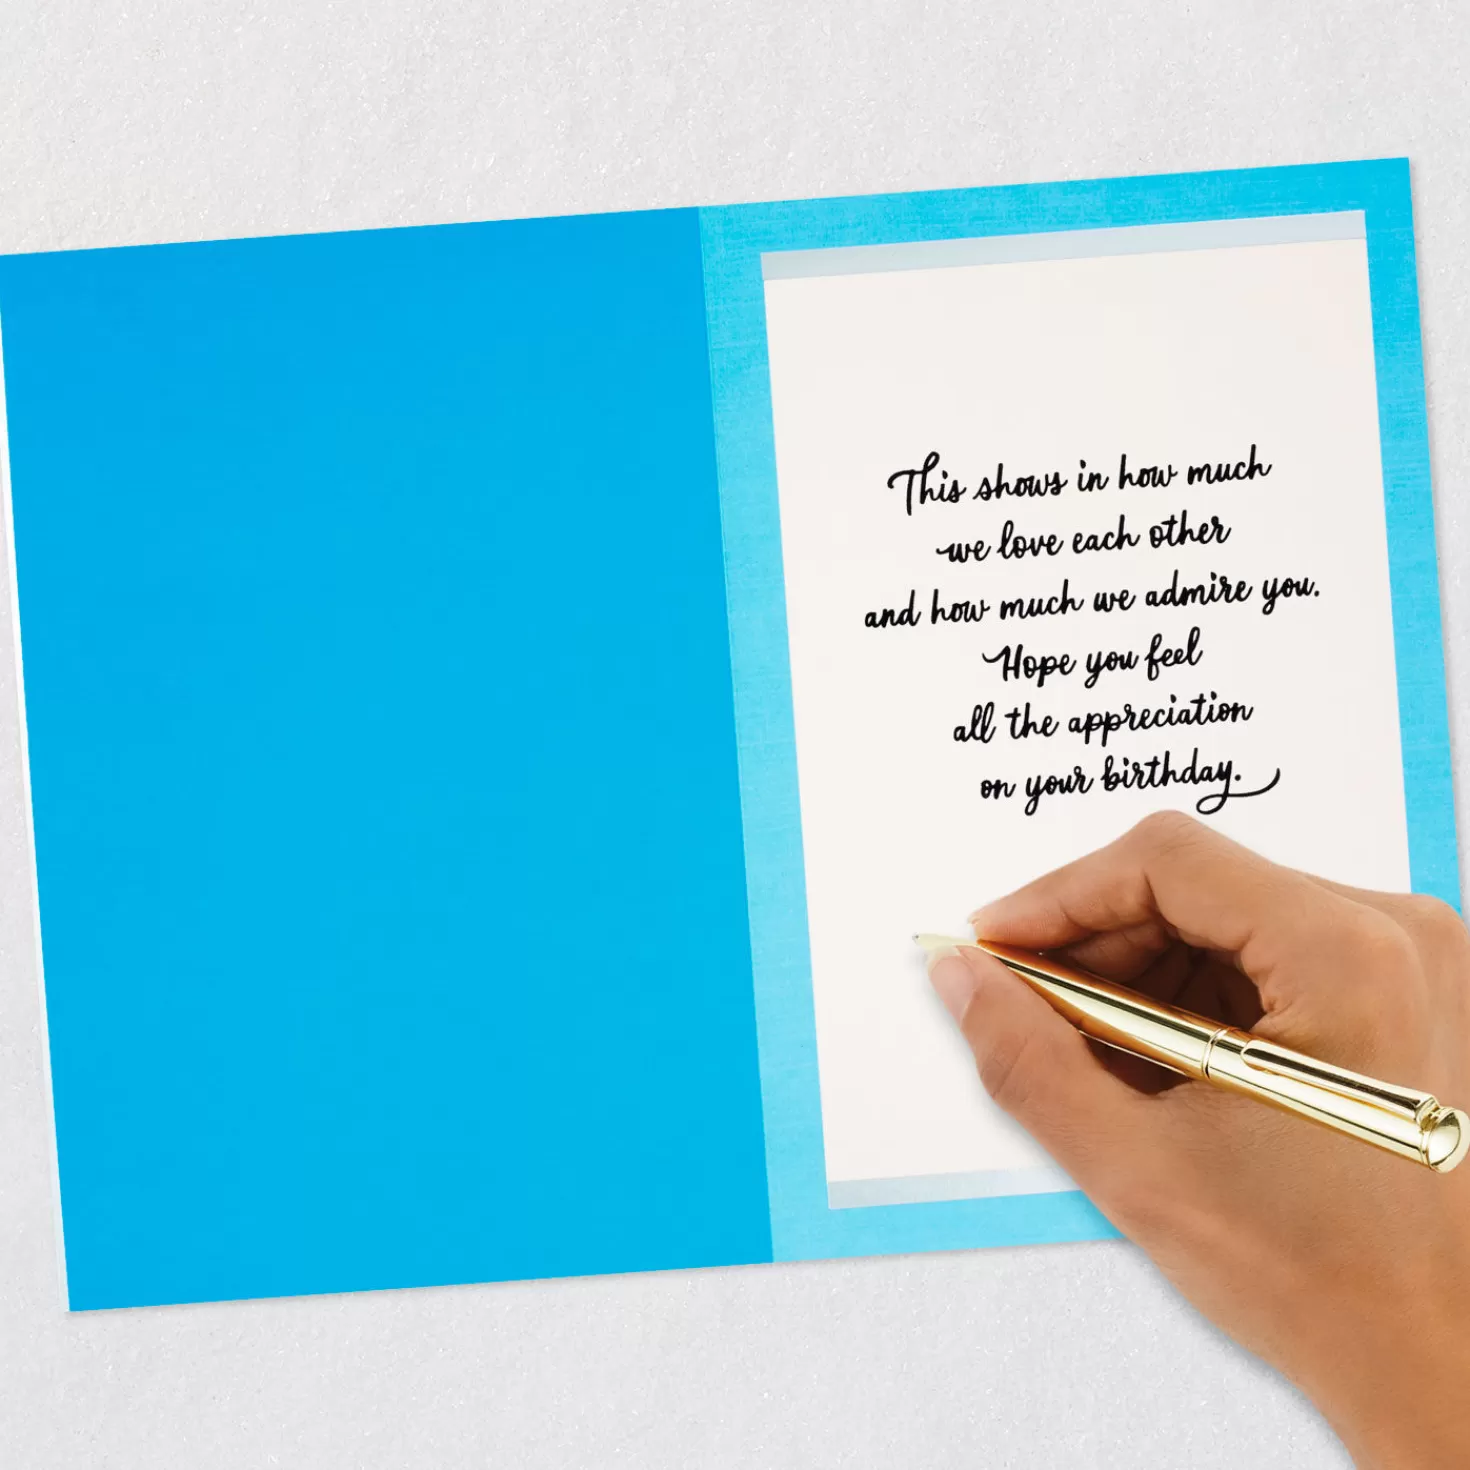 This shows in how much
we love each other
and how much we admire you.
Hope you feel
all the appreciation
on your birthday.